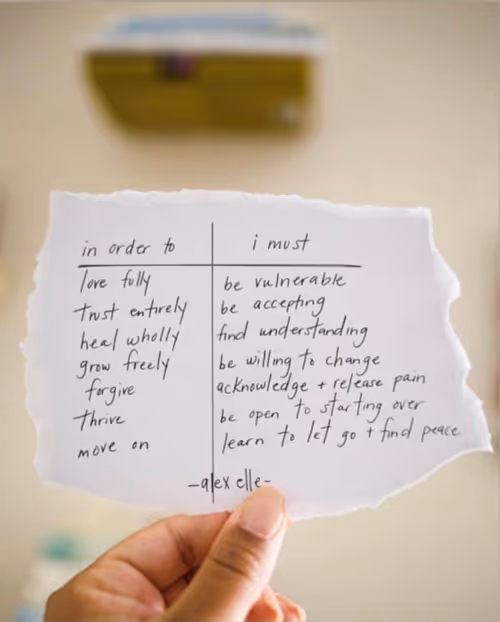 in order to | i must
love fully | be vulnerable
trust entirely | be accepting
heal wholly | find understanding
grow freely | be willing to change
forgive | acknowledge + release pain
thrive | be open to starting over
move on | learn to let go + find peace
-alex elle-